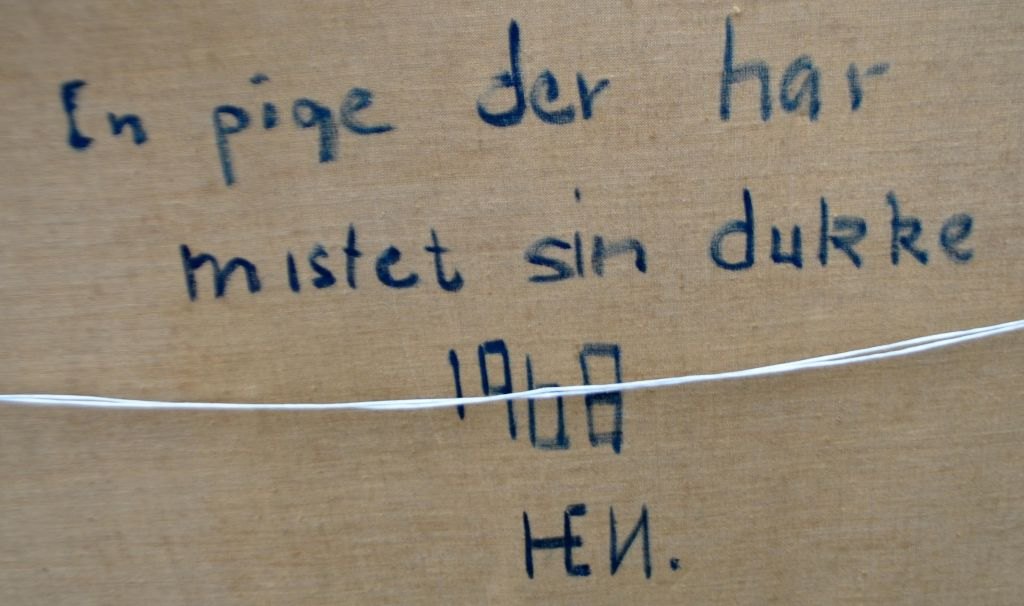 En pige der har
mistet sin dukke
1968
HEN.